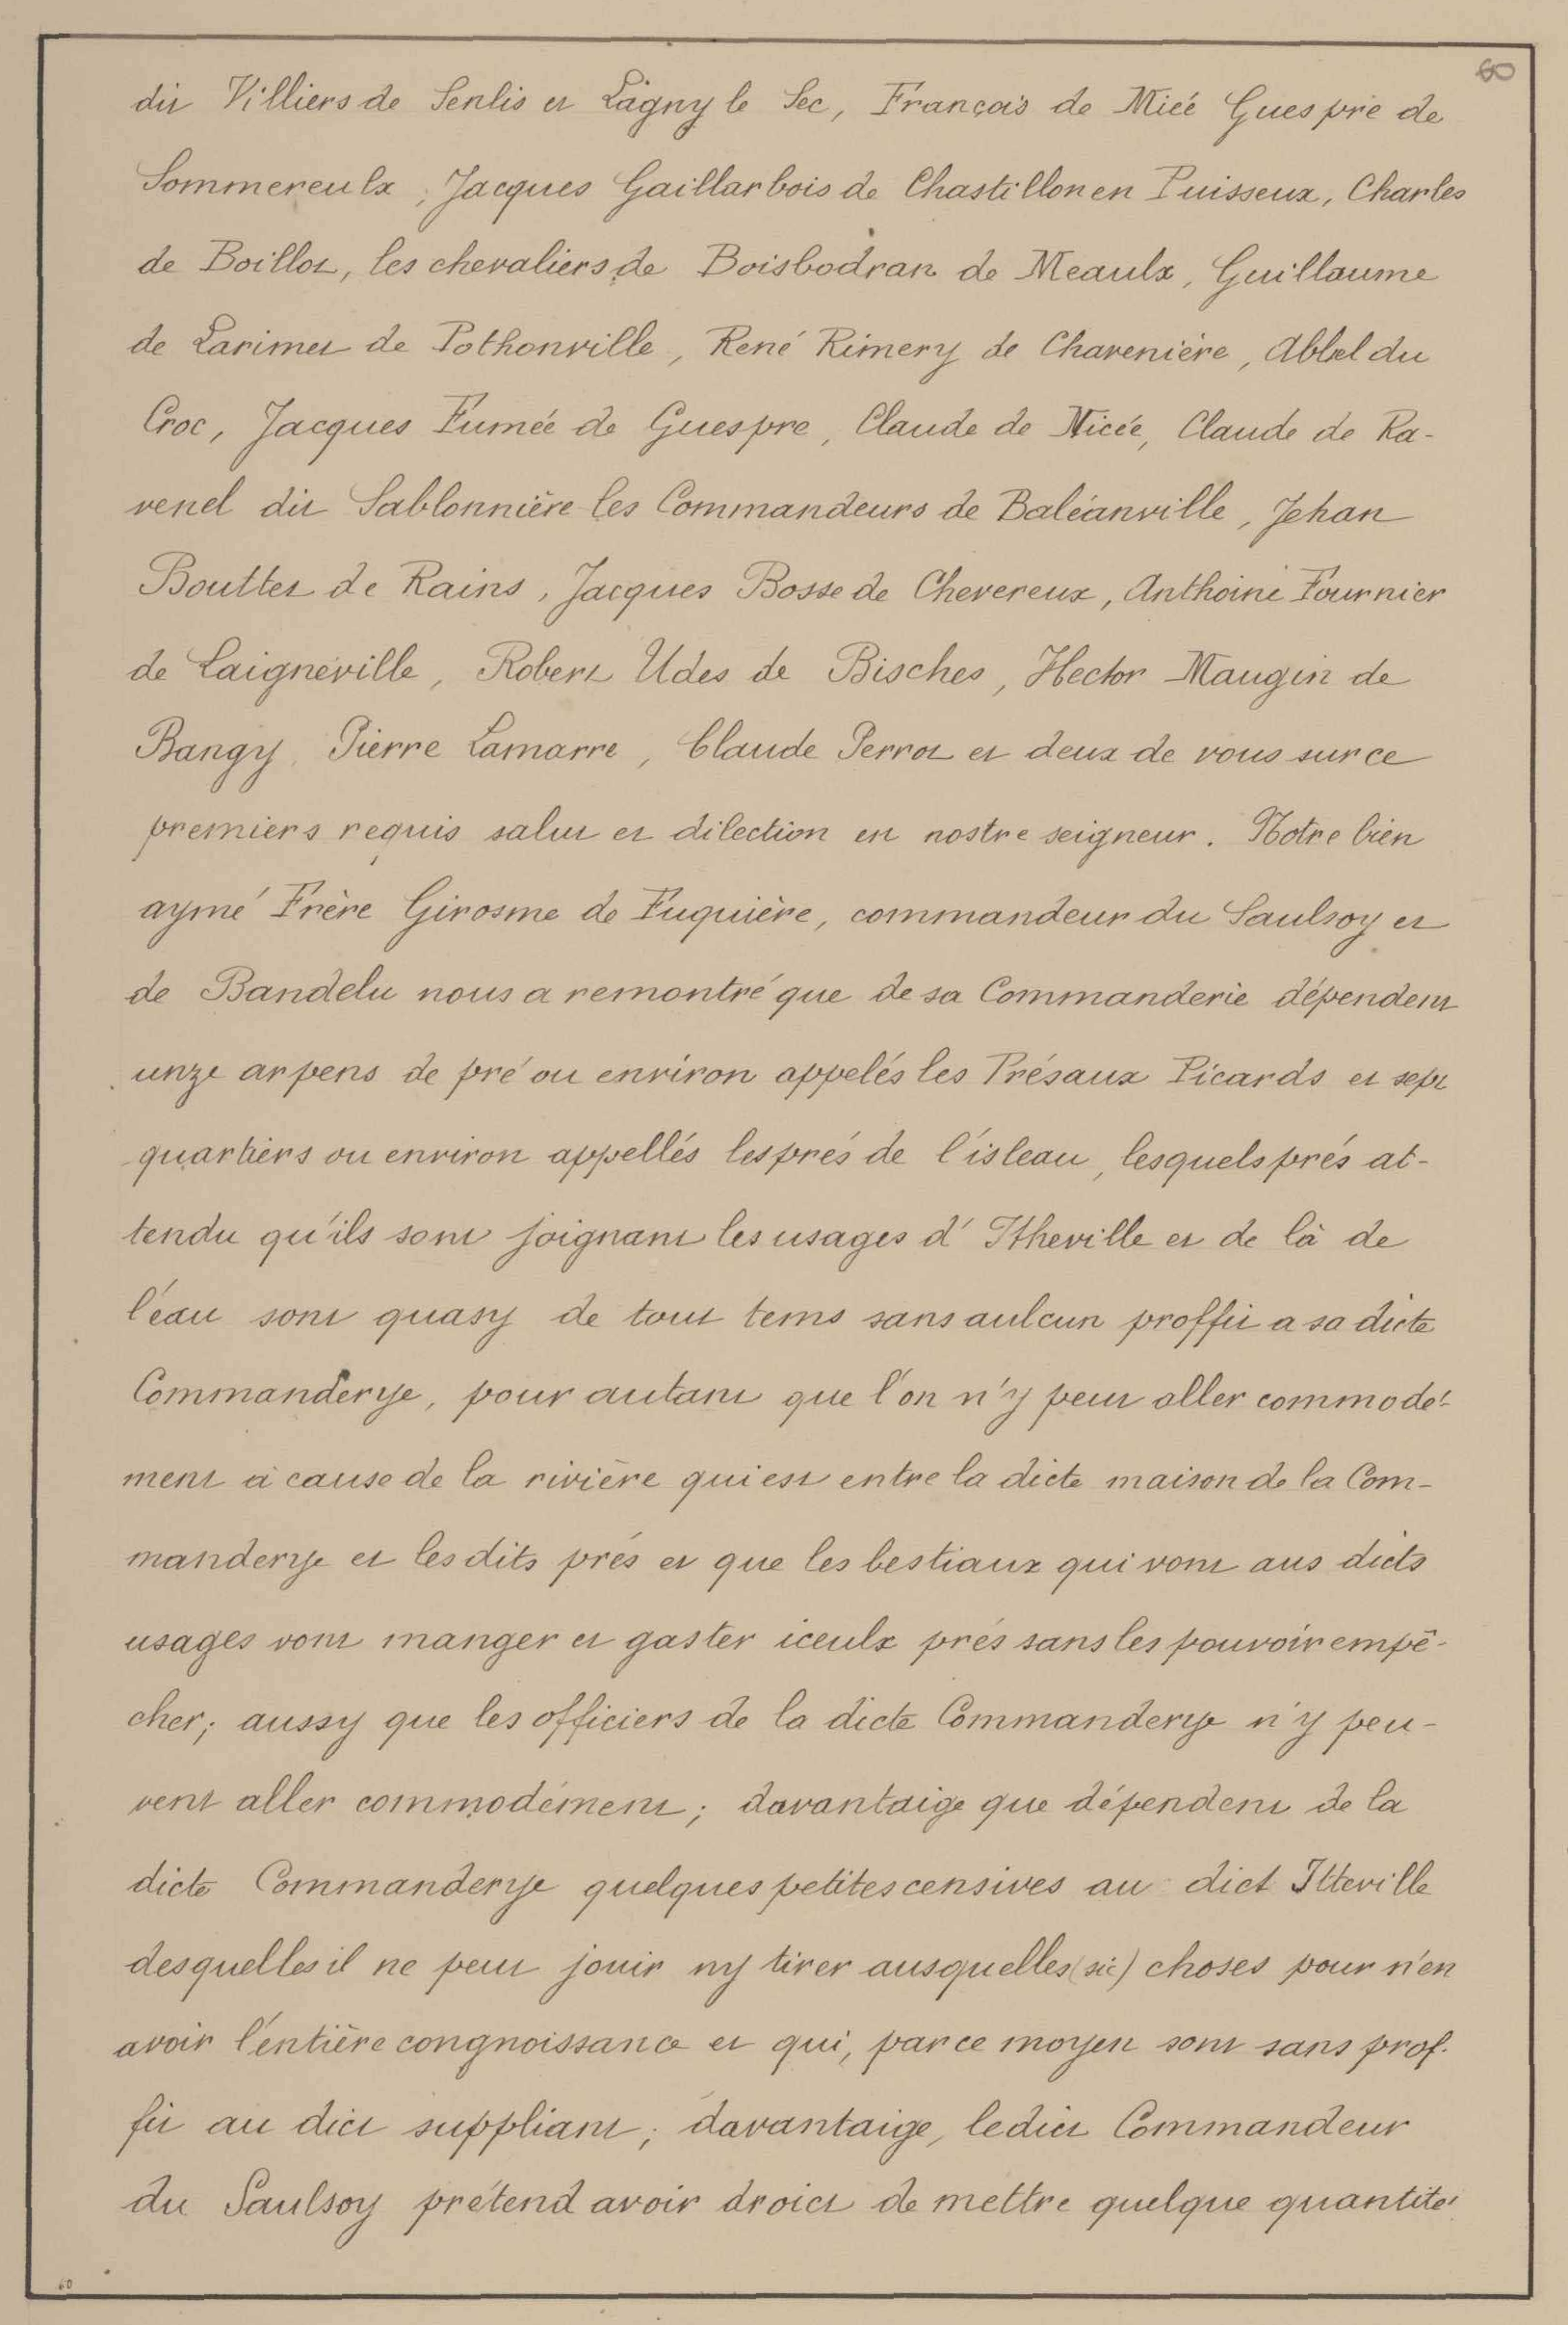 60
dit Villiers de Senlis et Lagny le Sec, François de Micé Guespré de
Sommereulx, Jacques Gaillarbois de Chastillon en Puisseux, Charles
de Boillot, les chevaliers de Boisbodran de Meaulx, Guillaume
de Larimet de Pothonville, René Rimery de Charenière, Abbel du
Croc, Jacques Fumée de Guespre, Claude de Nicée, Claude de Ra-
venel dit Sablonnière les Commandeurs de Baléanville, Jehan
Bouttet de Rains, Jacques Bosse de Chevereux, Anthoine Fournier
de Laigneville, Robert Udes de Bisches, Hector Maugin de
Bangy, Pierre Lamarre, Claude Perrot et deux de vous sur ce
premiers requis salut et dilection en nostre seigneur. Notre bien
aymé Frère Girosme de Fuquière, commandeur du Saulsoy et
de Bandelu nous a remontré que de sa Commanderie dépendent
unze arpens de pré ou environ appelés les Présaux Picards et sept
quartiers ou environ appellés les prés de l'isleau, lesquels prés at-
tendu qu'ils sont joignant les usages d'Itheville et de là de
l'éau sont quasy de tout tems sans aulcun proffit a sa dicte
Commanderye, pour autant que l'on n'y peut aller commodé-
ment à cause de la rivière qui est entre la dicte maison de la Com-
manderye et les dits prés et que les bestiaux qui vont aus dicts
usages vont manger et gaster iceulx prés sans les pouvoir empê-
cher; aussy que les officiers de la dicte Commanderye n'y peu-
vent aller commodément; davantaige que dépendent de la
dicte Commanderye quelques petites censives au dict Itteville
desquelles il ne peut jouir ny tirer ausquelles (sic) choses pour n'en
avoir l'entière congnoissance et qui, par ce moyen sont sans prof-
fit au dict suppliant; davantaige, ledict Commandeur
du Saulsoy prétend avoir droict de mettre quelque quantité
60